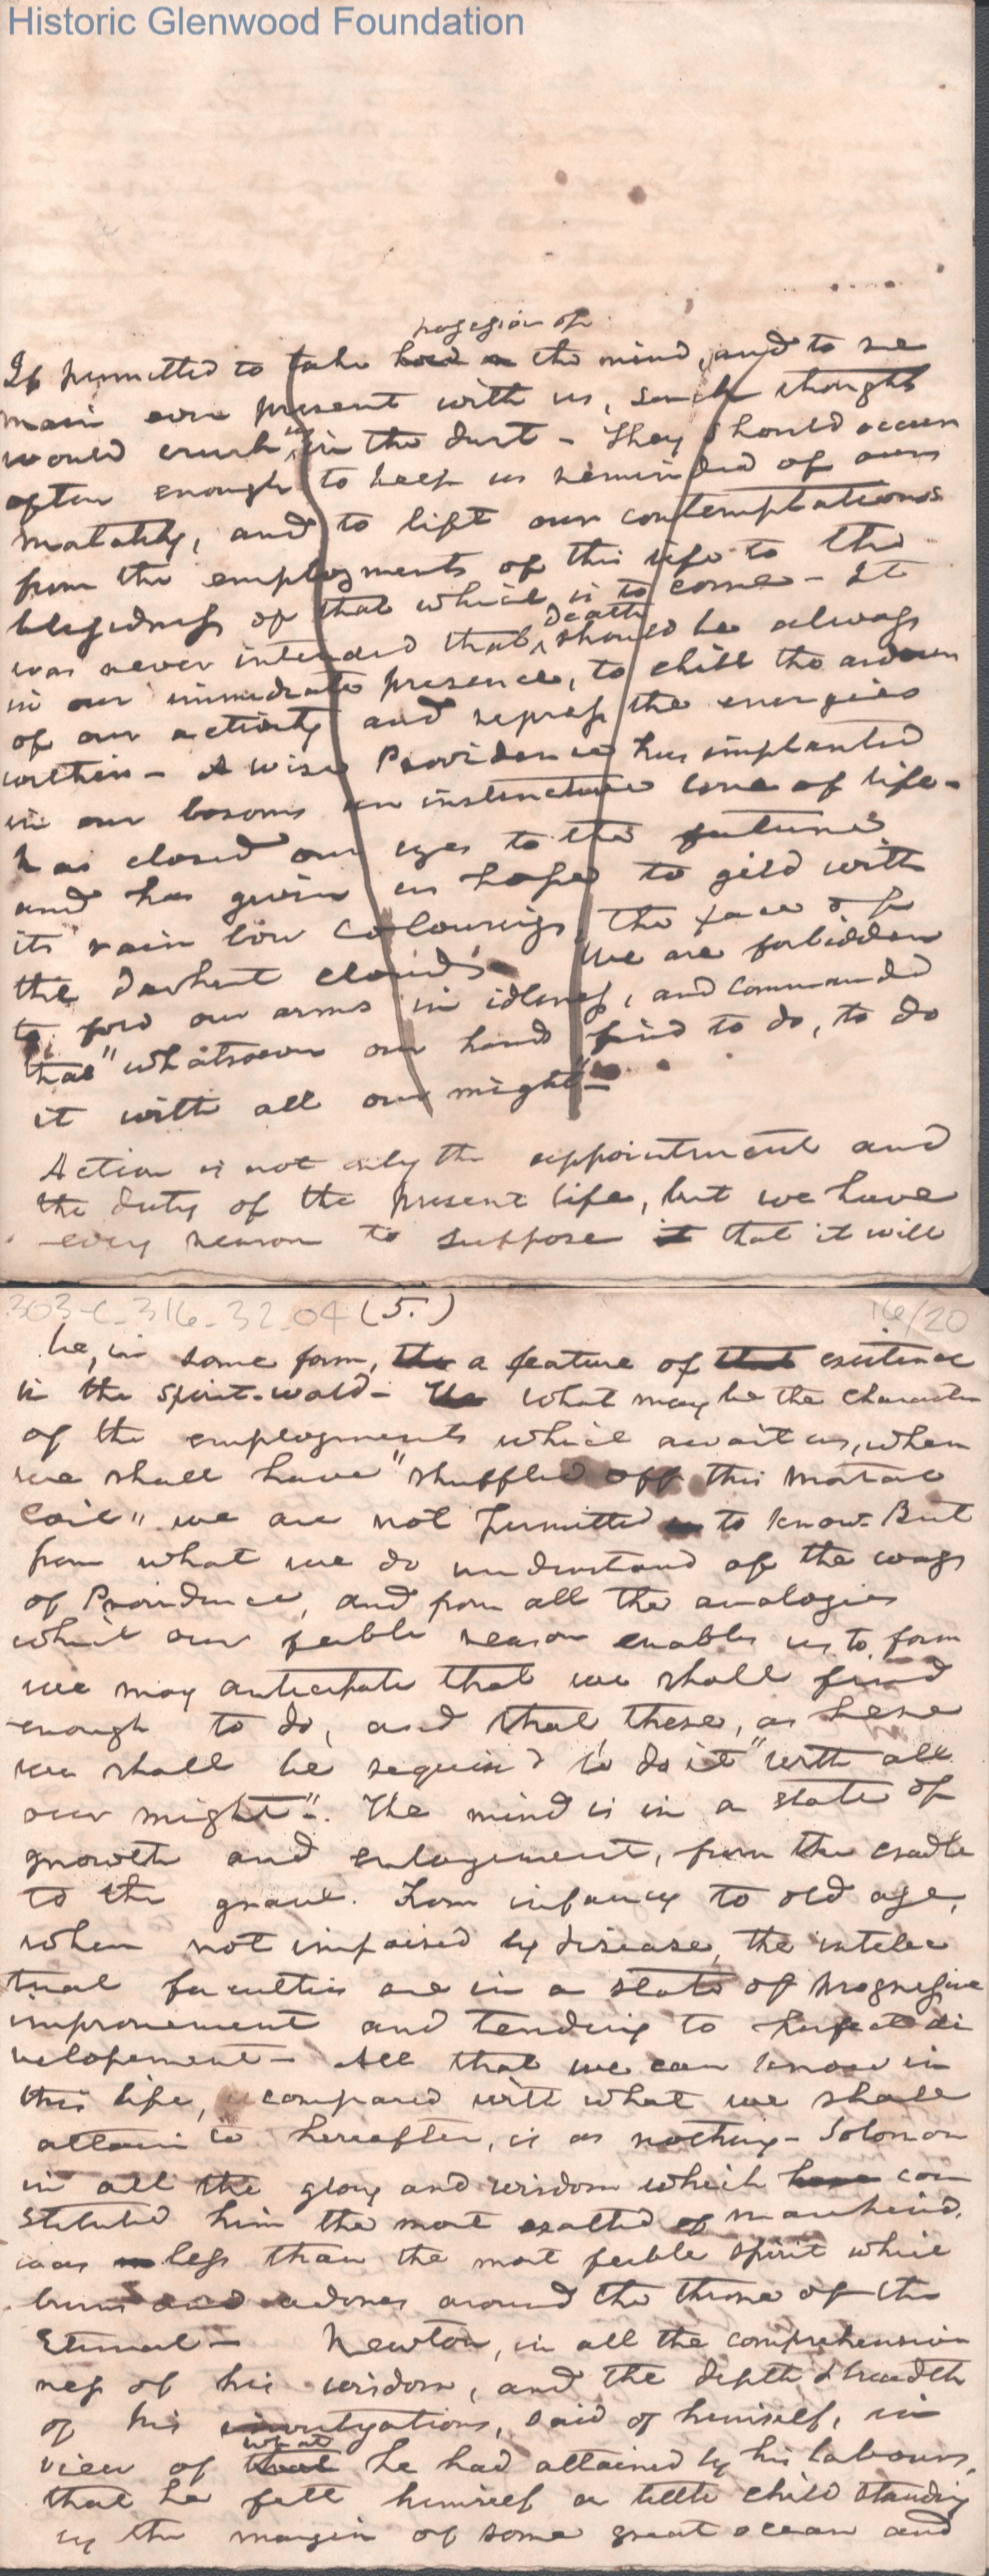 Historic Glenwood Foundation
possession of
If permitted to take hold on the mind, and to re
main ever present with us, such thoughts
would crush us in the dust - They should occur
often enough to keep us reminded of our
mortality, and to lift our contemplations
from the employments of this life to the
blessedness of that which is to come - It
death
was never intended that should be always
in our immediate presence, to chill the ardour
of our activity and repress the energies
within - A wise Providence has implanted
in our bosoms an instinctive love of life -
has closed our eyes to the future
and has given us hope to gild with
its rain bow colourings the face of
the darkest clouds. We are forbidden
to fold our arms in idleness, and commanded
that "whatsoever our hands find to do, to do
it with all our might" -
Action is not only the appointment and
the duty of the present life, but we have
every reason to suppose it that it will
303-C_316_32_04 (5.) 16/20
be, in some form, the a feature of that existence
in the spirit-world - The What may be the character
of the employments which await us, when
we shall have "shuffled off this mortal
coil" we are not permitted to know - But
from what we do understand of the ways
of Providence, and from all the analogies
which our feeble reason enables us to form
we may anticipate that we shall find
enough to do, and that there, as here
we shall be requir'd to do it "with all
our might". The mind is in a state of
growth and enlargement, from the cradle
to the grave. From infancy to old age,
when not impaired by disease, the intelec
tual faculties are in a state of progressive
improvement and tending to perfect de
velopement - All that we can know in
this life, compared with what we shall
attain to hereafter, is as nothing - Solomon
in all the glory and wisdom which have con
stituted him the most exalted of mankind,
was less than the most feeble spirit which
burns and adores around the throne of the
Eternal - Newton, in all the comprehensive
ness of his wisdom, and the depth & breadth
of his investigations, said of himself, in
what
view of that he had attained by his labours,
that he felt himself a little child standing
by the margin of some great ocean and